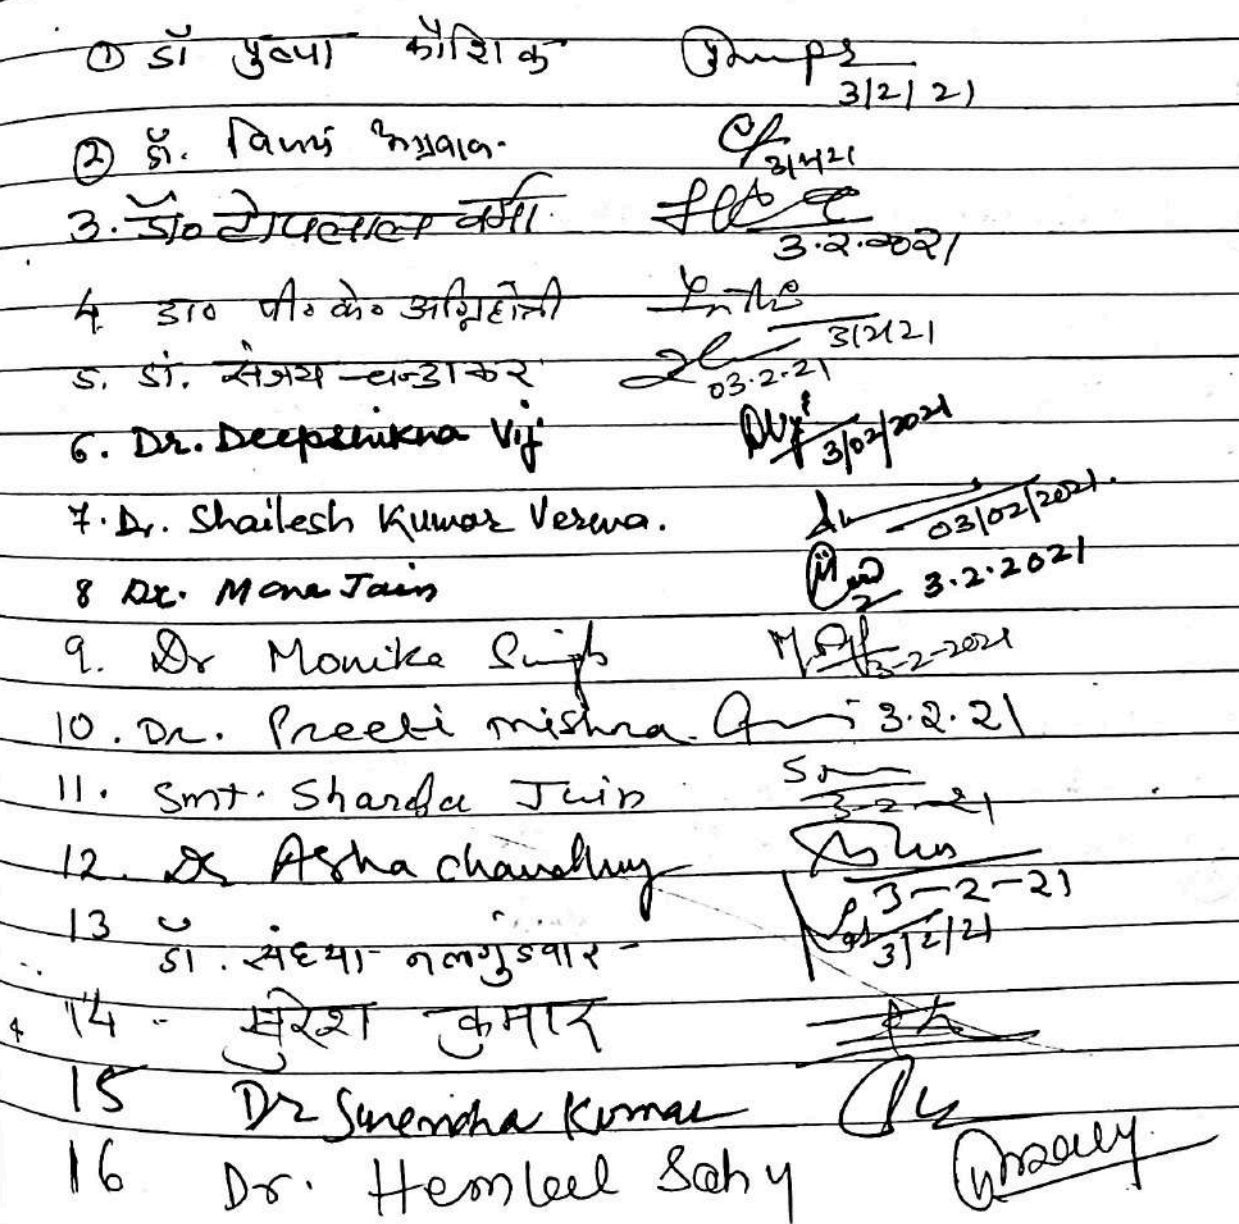 ① डॉ पुष्पा कौशिक 3/2/21
② डॉ. विनय अग्रवाल. 3/2/21
3. डॉ० टोपलाल वर्मा. 3.2.2021
4. डा० पी० के० अग्निहोत्री 3/2/21
5. डॉ. संजय चन्डाकर 03.2.21
6. Dr. Deepshikha Vij 3/02/2021
7. Dr. Shailesh Kumar Verma. 03/02/2021.
8 Dr. Mona Jain 3.2.2021
9. Dr Monika Singh 3-2-2021
10. Dr. Preeti mishra. 3.2.21
11. Smt. Sharda Jain 3-2-21
12. Dr Asha chaudhury 3-2-21
13 डॉ. संध्या नलगुंडवार - 3/2/21
14 - सुरेश कुमार
15 Dr Surendra Kumar
16 Dr. Sahy